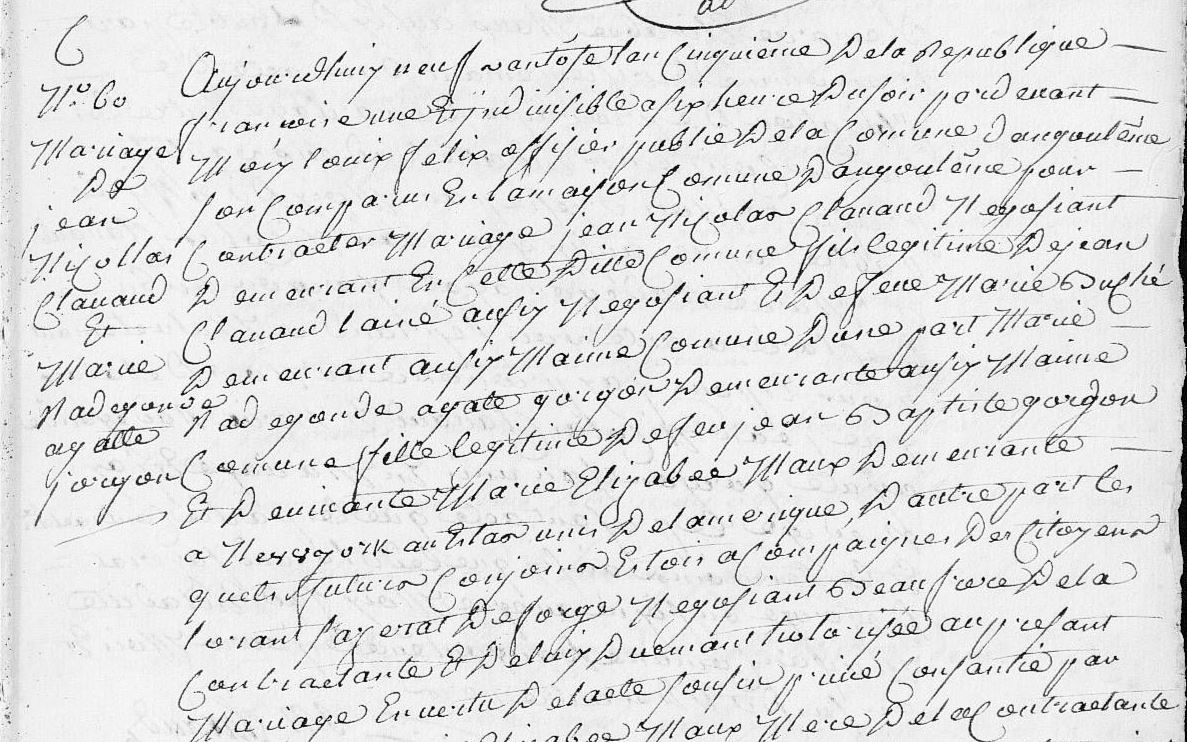 No 60
Mariage
De
jean
Nicollas
Clavaud
Et
Marie
Radegonde
agatte
jorgon
Aujourdhuy neuf vantose lan Cinquiéme De la Republique
francoise une Et jndivisible a six heure Du soir pard evant
Moy louix félix offisier public De la Comune D'angoulême
son Comparus En la maison Comune D'angoulême pour
Contracter Mariage jean Nicolas Clavaud Negosiant
Demeurant En Cette Ditte Comune fils legitime De jean
Clavaud lainé ausix Negosiant Et De feue Marie
Demeurant ausix Maime Comune D'une part Marie
Radegonde agate gorgon Demeurante ausix Maime
Comune fille legitime De feu jean Baptiste gorgon
Et De vivante Marie Elizabee Maux Demeurante
a Newyork au Estas unis De lamerique, D'autre part les
quels futurs Conjoins Estois acompaignes Des Citoyens
lorant fazerat De forge Negosiant Beaufrere De la
Contractante Et De luy Duemant hotorisée au presant
Mariage En vertu De lacte sousin privé Consantie par
Elizabee Maux Mere De la Contractante